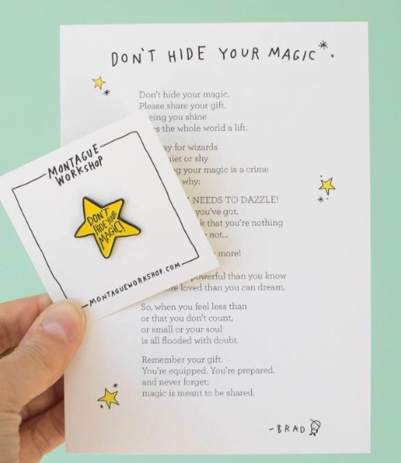 DON'T HIDE YOUR MAGIC*.
Don't hide your magic.
Please share your gift.
you shine
the whole world a lift.
for wizards
or shy
your magic is a crime
why:
NEEDS TO DAZZLE!
you've got.
that you're nothing
not...
more!
powerful than you know
loved than you can dream.
So, when you feel less than
or that you don't count,
or small or your soul
is all flooded with doubt.
Remember your gift.
You're equipped. You're prepared.
and never forget:
magic is meant to be shared.
-BRAD
MONTAGUE
WORKSHOP
DON'T
HIDE YOUR
MAGIC!
MONTAGUEWORKSHOP.COM